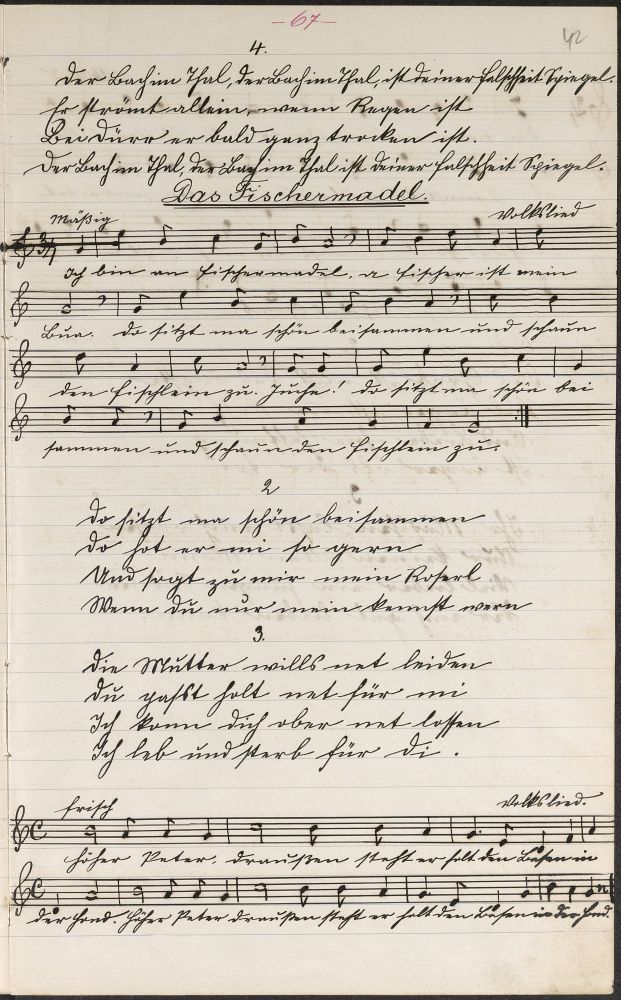 -67-
42
4.
Der Bach im Thal, der Bach im Thal, ist deiner Falschheit Spiegel.
Er strömt allein, wenn Regen ist
Bei Dürr er bald ganz trocken ist.
Der Bach im Thal, der Bach im Thal ist deiner Falschheit Spiegel.
Das Fischermadel.
Mäßig Volkslied
Ich bin an Fischermadel, a Fischer ist mein
Bua. Do sitzt ma schön beisammen und schaun
den Fischlein zu. Juche! Do sitzt ma schön bei
sammen und schaun den Fischlein zu.
2
Do sitzt ma schön beisammen
Do hot er mi so gern
Und sogt zu mir mein Roserl
Wenn du nur mein kennst wern
3.
Die Mutter wills net leiden
Du passt holt net für mi
Ich konn dich ober net lossen
Ich leb und sterb für di.
frisch Volkslied.
Höher Peter, draußen steht er holt den Besen in
der Hond. Höher Peter draußen steht er holt den Besen in der Hnd.